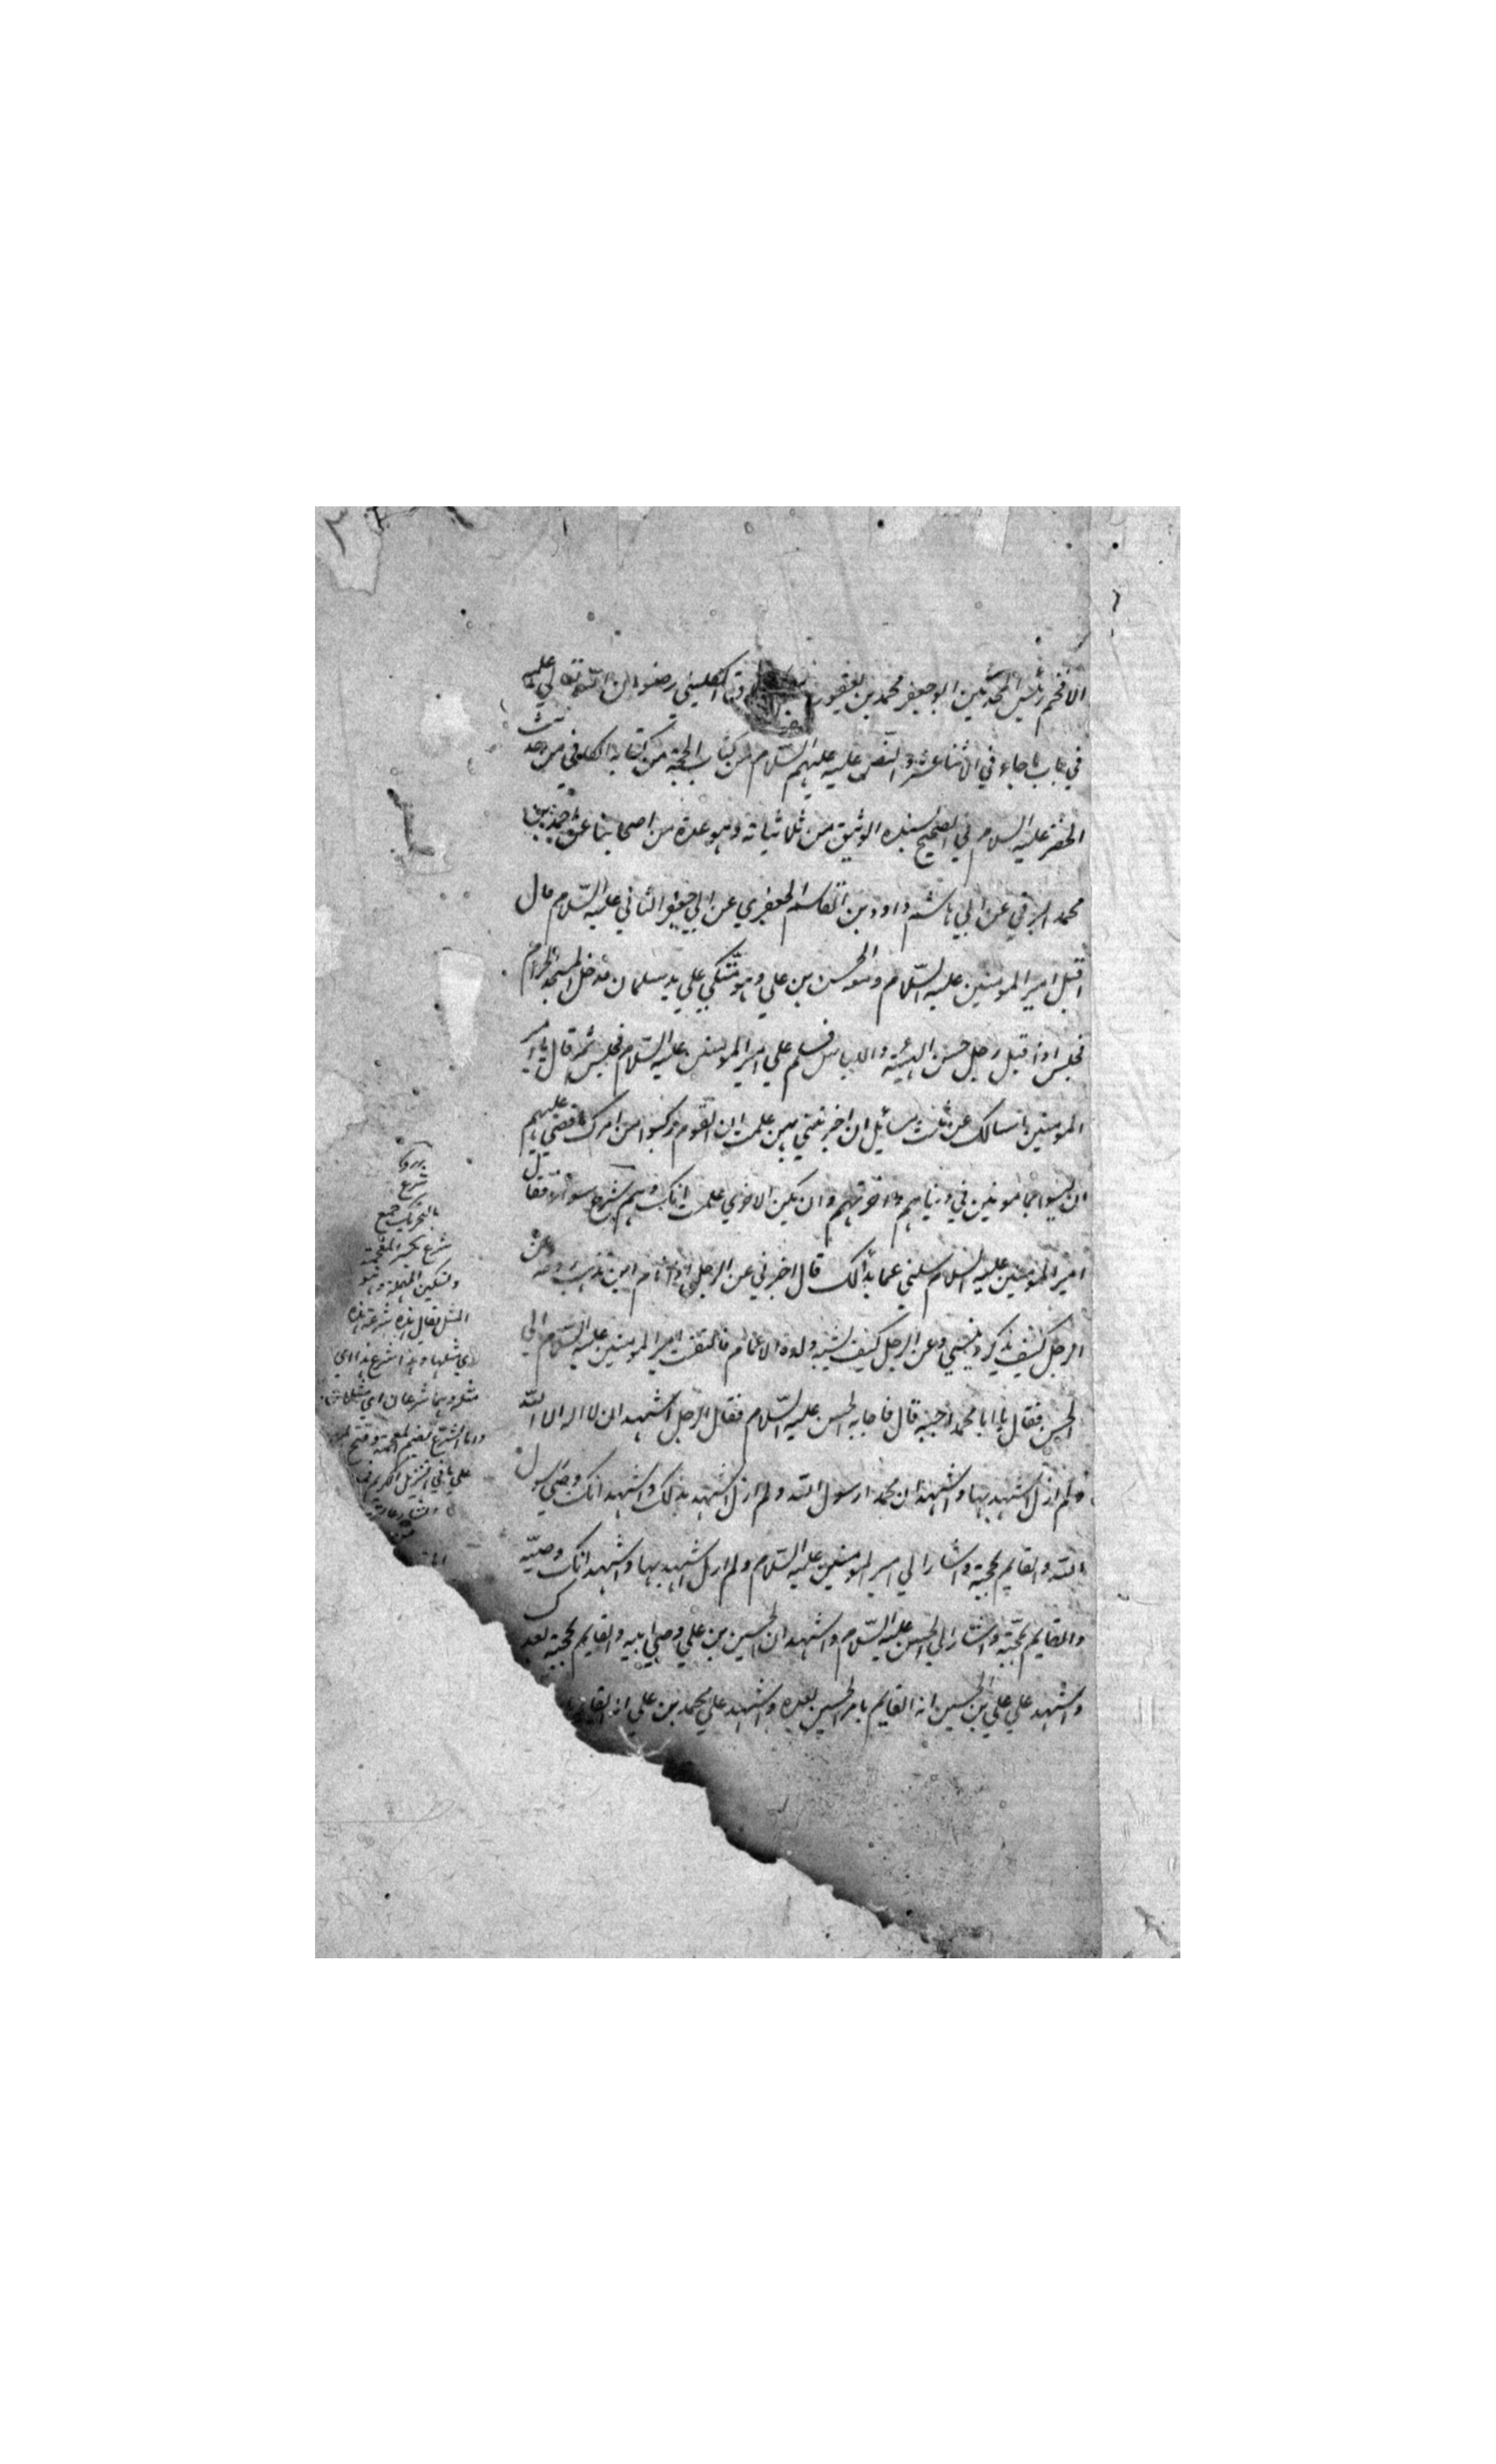 الافخم رئيس المحدثين ابو جعفر محمد بن يعقوب الكليني رضوان الله تعالي عليه
في باب ما جاء في الاثنا عشر و النص عليه عليهم السلام من كتاب الحجة من كتابه الكافي من حديث
الخضر عليه السلام في الصحيح بسنده الوثيق من ثلاثياته وهو عدة من اصحابنا عن احمد بن
محمد البرقي عن ابي هاشم داود بن القاسم الجعفري عن ابي جعفر الثاني عليه السلام قال
اقبل امير المومنين عليه السلام ومعه الحسن بن علي وهو متكي علي يد سلمان فدخل المسجد الحرام
فجلس اذ اقبل رجل حسن الهيئة واللباس فسلم علي امير المومنين عليه السلام فجلس ثم قال يا امير
المومنين اسالك عن ثلث مسائل ان اخبرتني بهن علمت ان القوم ركبوا من امرك ما قضي عليهم
ان ليسوا بمامونين في دنياهم و اخرتهم وان تكن الاخري علمت انك وهم شرع سواء فقال
امير المومنين عليه السلام سلني عما بدا لك قال اخبرني عن الرجل اذا نام اين تذهب روحه وعن
الرجل كيف يذكر وينسي وعن الرجل كيف يشبه ولده الاعمام فالتفت امير المومنين عليه السلام الي
الحسن فقال يا ابا محمد اجبه قال فاجابه الحسن عليه السلام فقال الرجل اشهد ان لا اله الا الله
ولم ازل اشهد بها واشهد ان محمدا رسول الله ولم ازل اشهد بذلك واشهد انك وصي رسول
الله والقايم بحجته واشار الي امير المومنين عليه السلام ولم ازل اشهد بها واشهد انك وصيه
والقايم بحجته واشار الي الحسن عليه السلام واشهد ان الحسين بن علي وصي ابيه والقايم بحجته بعدك
واشهد علي علي بن الحسين انه القايم بامر الحسين بعده واشهد علي محمد بن علي انه القايم
شرع
بالتحريك جمع
شرع بكسر المعجمة
وتسكين المهملة وهو
المثل يقال هذه شرعة هذه
اي مثلها وهذا شرع هذا اي
مثله وهما شرعان اي مثلان
واما الشرع بضم المعجمة وفتح
علي ما في التنزيل الكريم